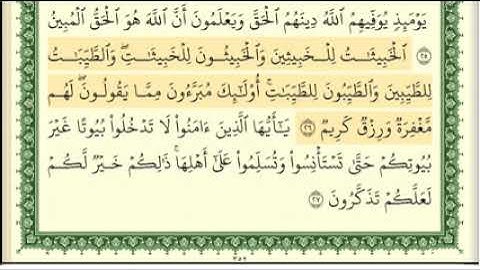 يَوْمَئِذٍ يُوَفِّيهِمُ ٱللَّهُ دِينَهُمُ ٱلْحَقَّ وَيَعْلَمُونَ أَنَّ ٱللَّهَ هُوَ ٱلْحَقُّ ٱلْمُبِينُ
٢٥ ٱلْخَبِيثَٰتُ لِلْخَبِيثِينَ وَٱلْخَبِيثُونَ لِلْخَبِيثَٰتِ ۖ وَٱلطَّيِّبَٰتُ
لِلطَّيِّبِينَ وَٱلطَّيِّبُونَ لِلطَّيِّبَٰتِ ۚ أُو۟لَٰٓئِكَ مُبَرَّءُونَ مِمَّا يَقُولُونَ ۖ لَهُم
مَّغْفِرَةٌ وَرِزْقٌ كَرِيمٌ ٢٦ يَٰٓأَيُّهَا ٱلَّذِينَ ءَامَنُوا۟ لَا تَدْخُلُوا۟ بُيُوتًا غَيْرَ
بُيُوتِكُمْ حَتَّىٰ تَسْتَأْنِسُوا۟ وَتُسَلِّمُوا۟ عَلَىٰٓ أَهْلِهَا ۚ ذَٰلِكُمْ خَيْرٌ لَّكُمْ
لَعَلَّكُمْ تَذَكَّرُونَ ٢٧
٣٥٢